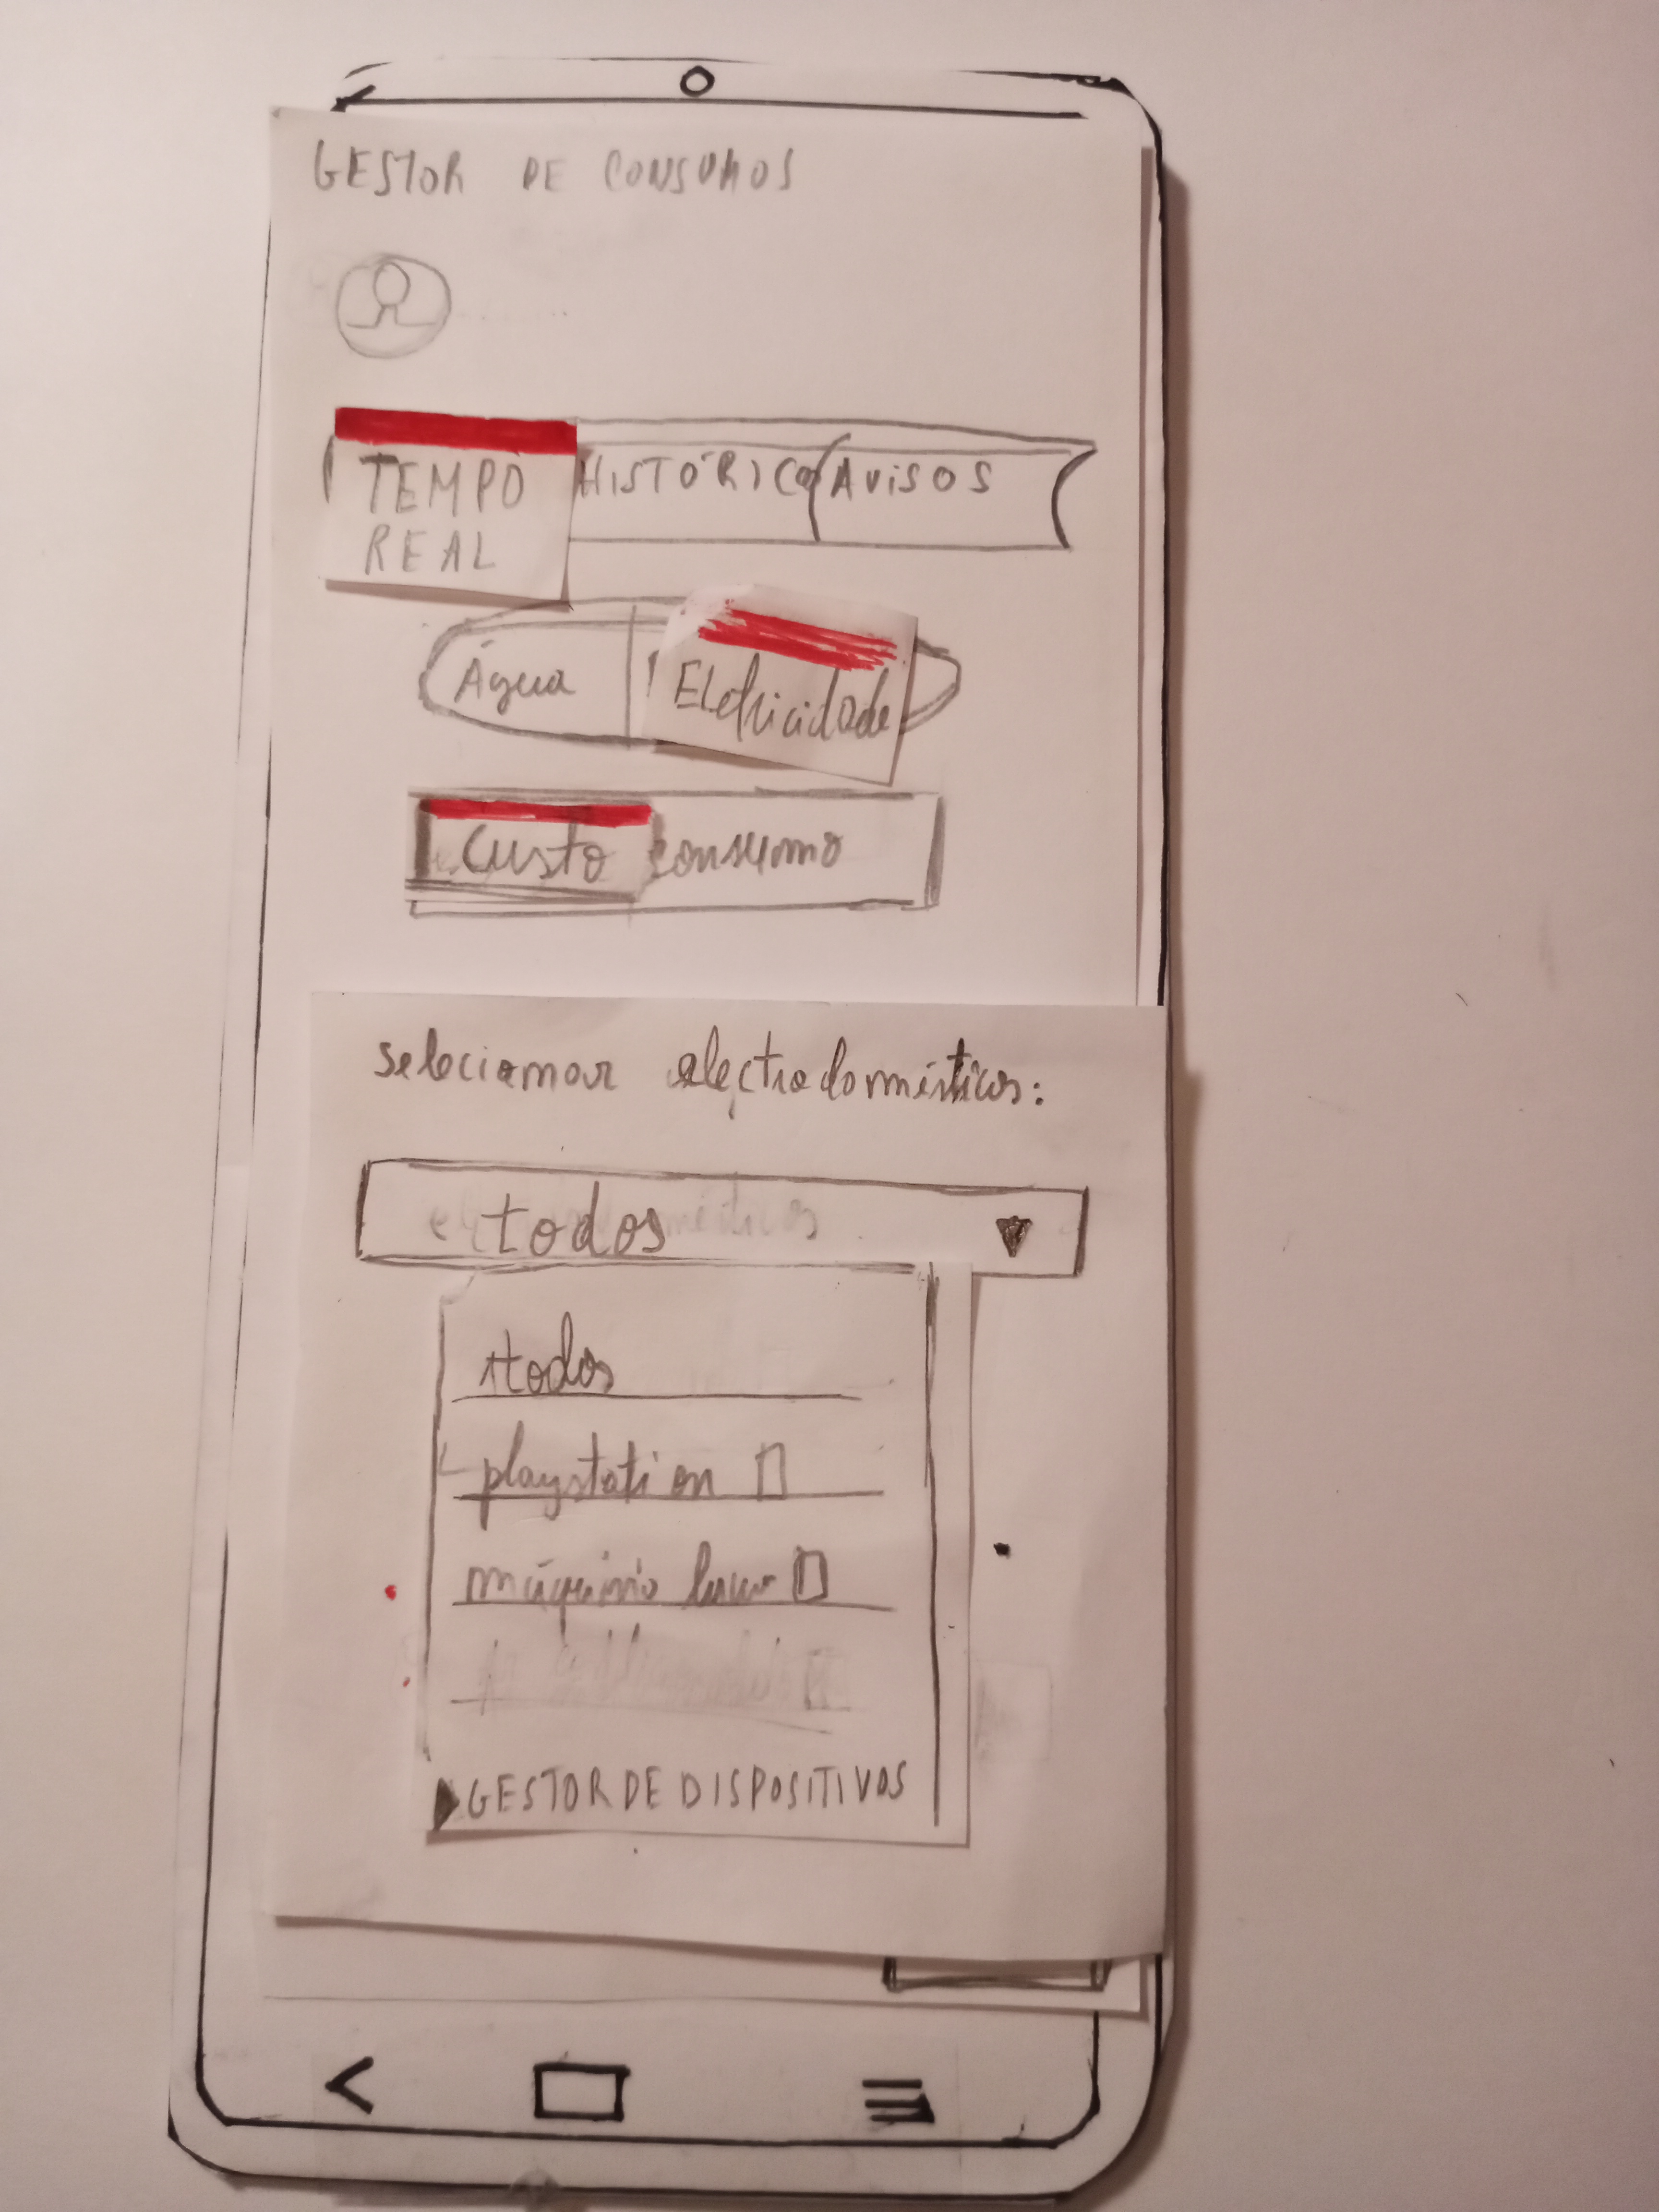 GESTOR DE CONSUMOS
TEMPO REAL
HISTÓRICO
AVISOS
Água
Eletricidade
Custo
consumo
selecionar electrodomésticos:
todos
todos
playstation
máquina
GESTOR DE DISPOSITIVOS